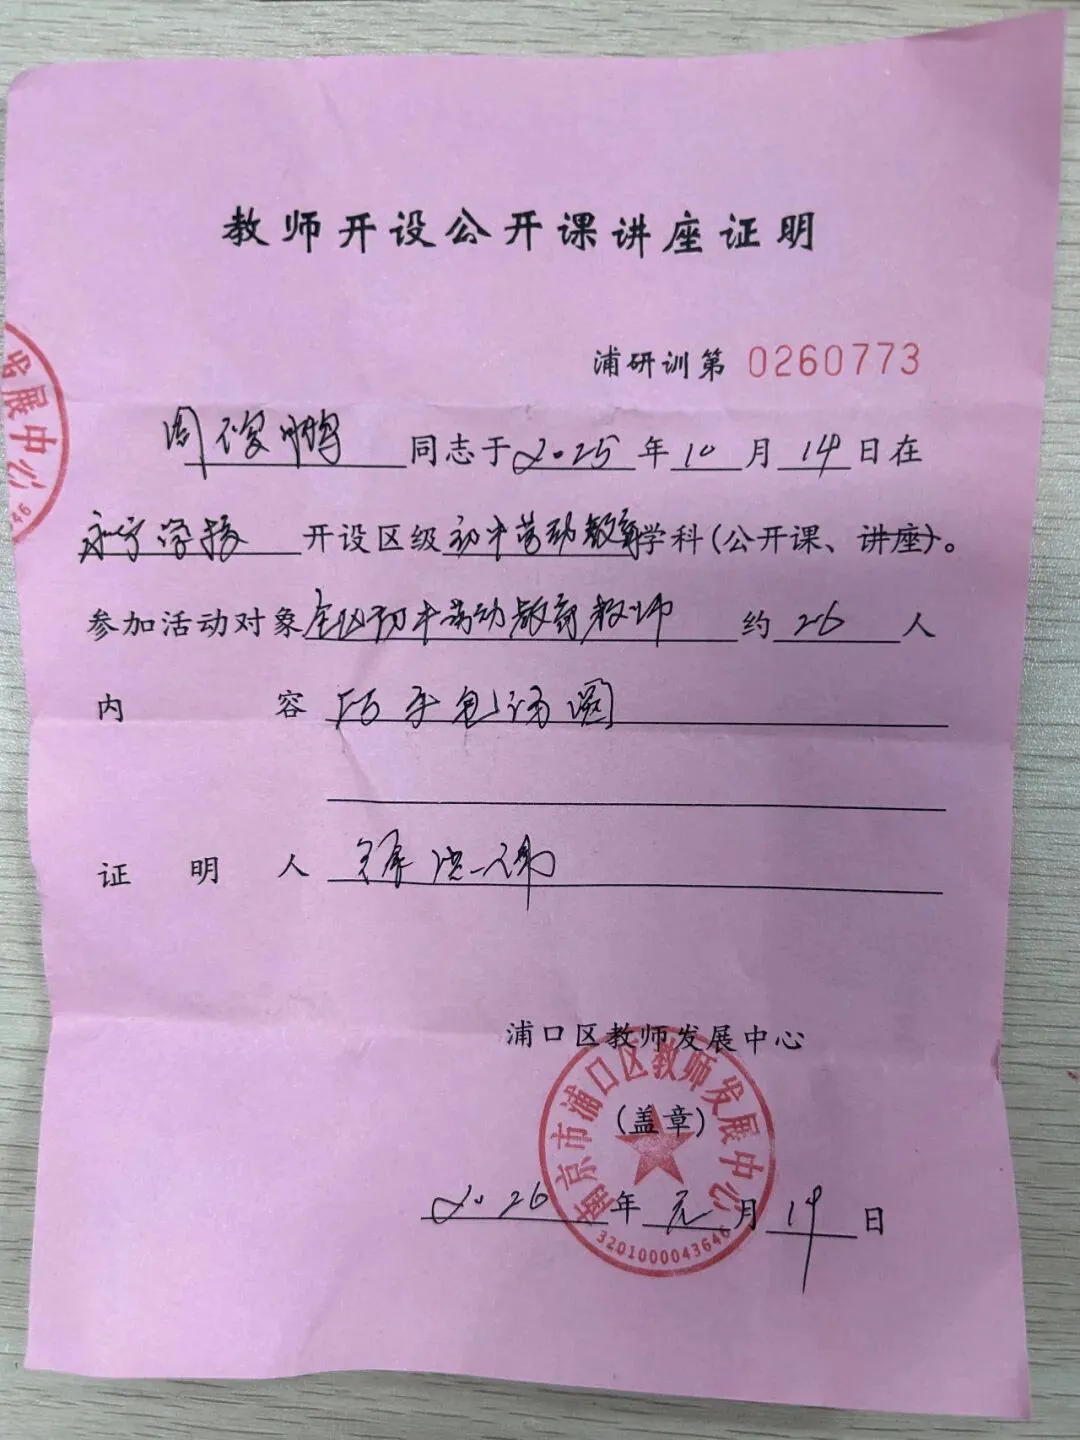 教师开设公开课讲座证明
浦研训第 0260773
周俊鹏 同志于 2025 年 10 月 14 日在
永宁学校 开设区级 初中劳动教育 学科(公开课、讲座)。
参加活动对象 全区初中劳动教育教师 约 26 人
内容 巧手包汤圆
证明人
浦口区教师发展中心
(盖章)
2026 年 元 月 19 日
南京市浦口区教师发展中心
3201000043646
发展中心
46